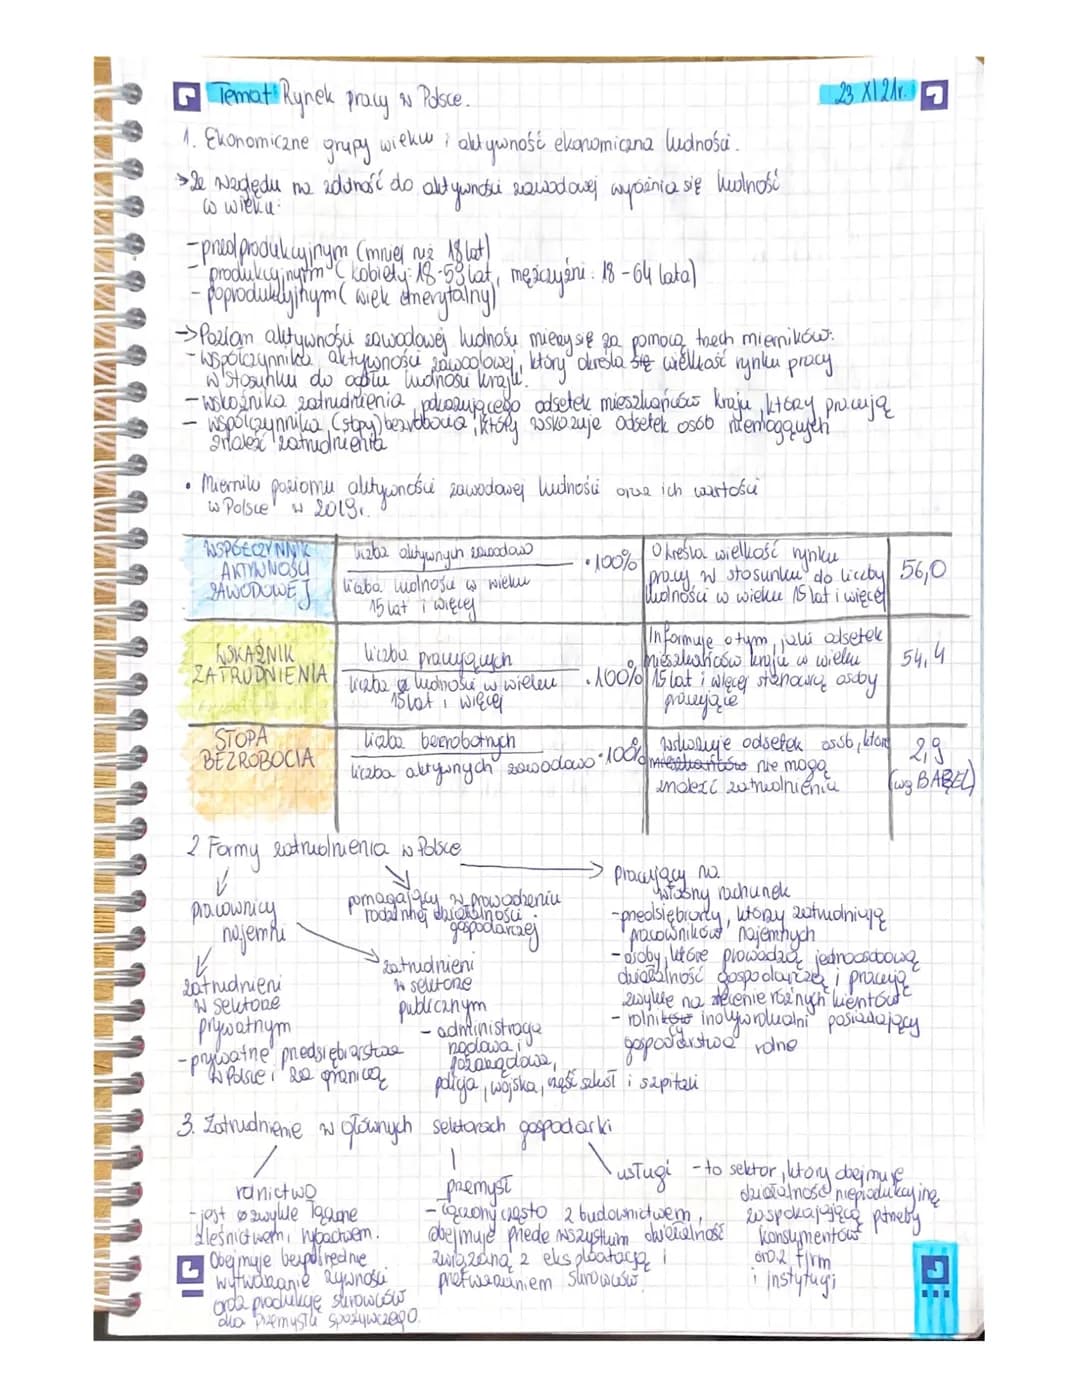 Temat: Rynek pracy w Polsce.
23 XI 21r.
1. Ekonomiczne grupy wieku i aktywność ekonomiczna ludności.
→ Ze względu na zdolność do aktywności zawodowej wyróżnia się ludność
w wieku:
- przedprodukcyjnym (mniej niż 18 lat)
- produkcyjnym (kobiety: 18-59 lat, mężczyźni: 18-64 lata)
- poprodukcyjnym (wiek emerytalny)
→ Poziom aktywności zawodowej ludności mierzy się za pomocą trzech mierników:
- współczynnika aktywności zawodowej, który określa się wielkość rynku pracy
w stosunku do ogółu ludności kraju.
- wskaźnika zatrudnienia pokazującego odsetek mieszkańców kraju, którzy pracują
- współczynnika (stopy) bezrobocia, który wskazuje odsetek osób niemogących
znaleźć zatrudnienia
• Mierniki poziomu aktywności zawodowej ludności oraz ich wartości
w Polsce w 2019r.
WSPÓŁCZYNNIK
AKTYWNOŚCI
ZAWODOWEJ
liczba aktywnych zawodowo
liczba ludności w wieku
15 lat i więcej
·100%
Określa wielkość rynku
pracy w stosunku do liczby
ludności w wieku 15 lat i więcej
56,0
WSKAŹNIK
ZATRUDNIENIA
liczba pracujących
liczba ludności w wieku
15 lat i więcej
·100%
Informuje o tym, jaki odsetek
mieszkańców kraju w wieku
15 lat i więcej stanowią osoby
pracujące
54,4
STOPA
BEZROBOCIA
liczba bezrobotnych
liczba aktywnych zawodowo
·100%
wskazuje odsetek osób, które
mieszkańców nie mogą
znaleźć zatrudnienia
2,9
(wg BAEL)
2 Formy zatrudnienia w Polsce
pracownicy
najemni
pomagający w prowadzeniu
rodzinnej działalności
gospodarczej
pracujący na
własny rachunek
- przedsiębiorcy, którzy zatrudniają
pracowników najemnych
- osoby, które prowadzą jednoosobową
działalność gospodarczą i pracują
zwykle na zlecenie różnych klientów
- rolnicy indywidualni posiadający
gospodarstwa rolne
zatrudnieni
w sektorze
prywatnym
- prywatne przedsiębiorstwa
w Polsce i za granicą
zatrudnieni
w sektorze
publicznym
- administracja
rządowa i
pozarządowa,
policja, wojska, część szkół i szpitali
3. Zatrudnienie w głównych sektorach gospodarki
rolnictwo
- jest zwykle łączone
z leśnictwem i rybactwem.
Obejmuje bezpośrednie
wytwarzanie żywności
oraz produkcję surowców
dla przemysłu spożywczego.
przemysł
- łączony często z budownictwem,
obejmuje przede wszystkim działalność
związaną z eksploatacją i
przetwarzaniem surowców.
usługi - to sektor, który obejmuje
działalność nieprodukcyjną
zaspokajającą potrzeby
konsumentów
oraz firm
i instytucji